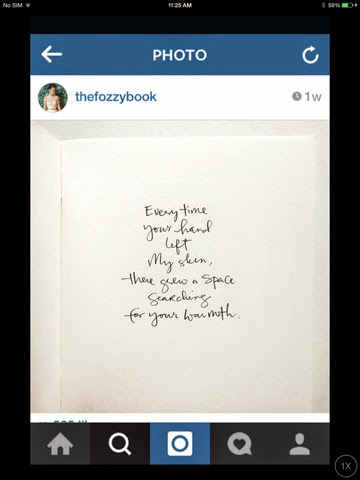 No SIM
11:25 AM
59%
PHOTO
thefozzybook
1w
Every time
your hand
left
My skin,
there grew a space
searching
for your warmth.
1X